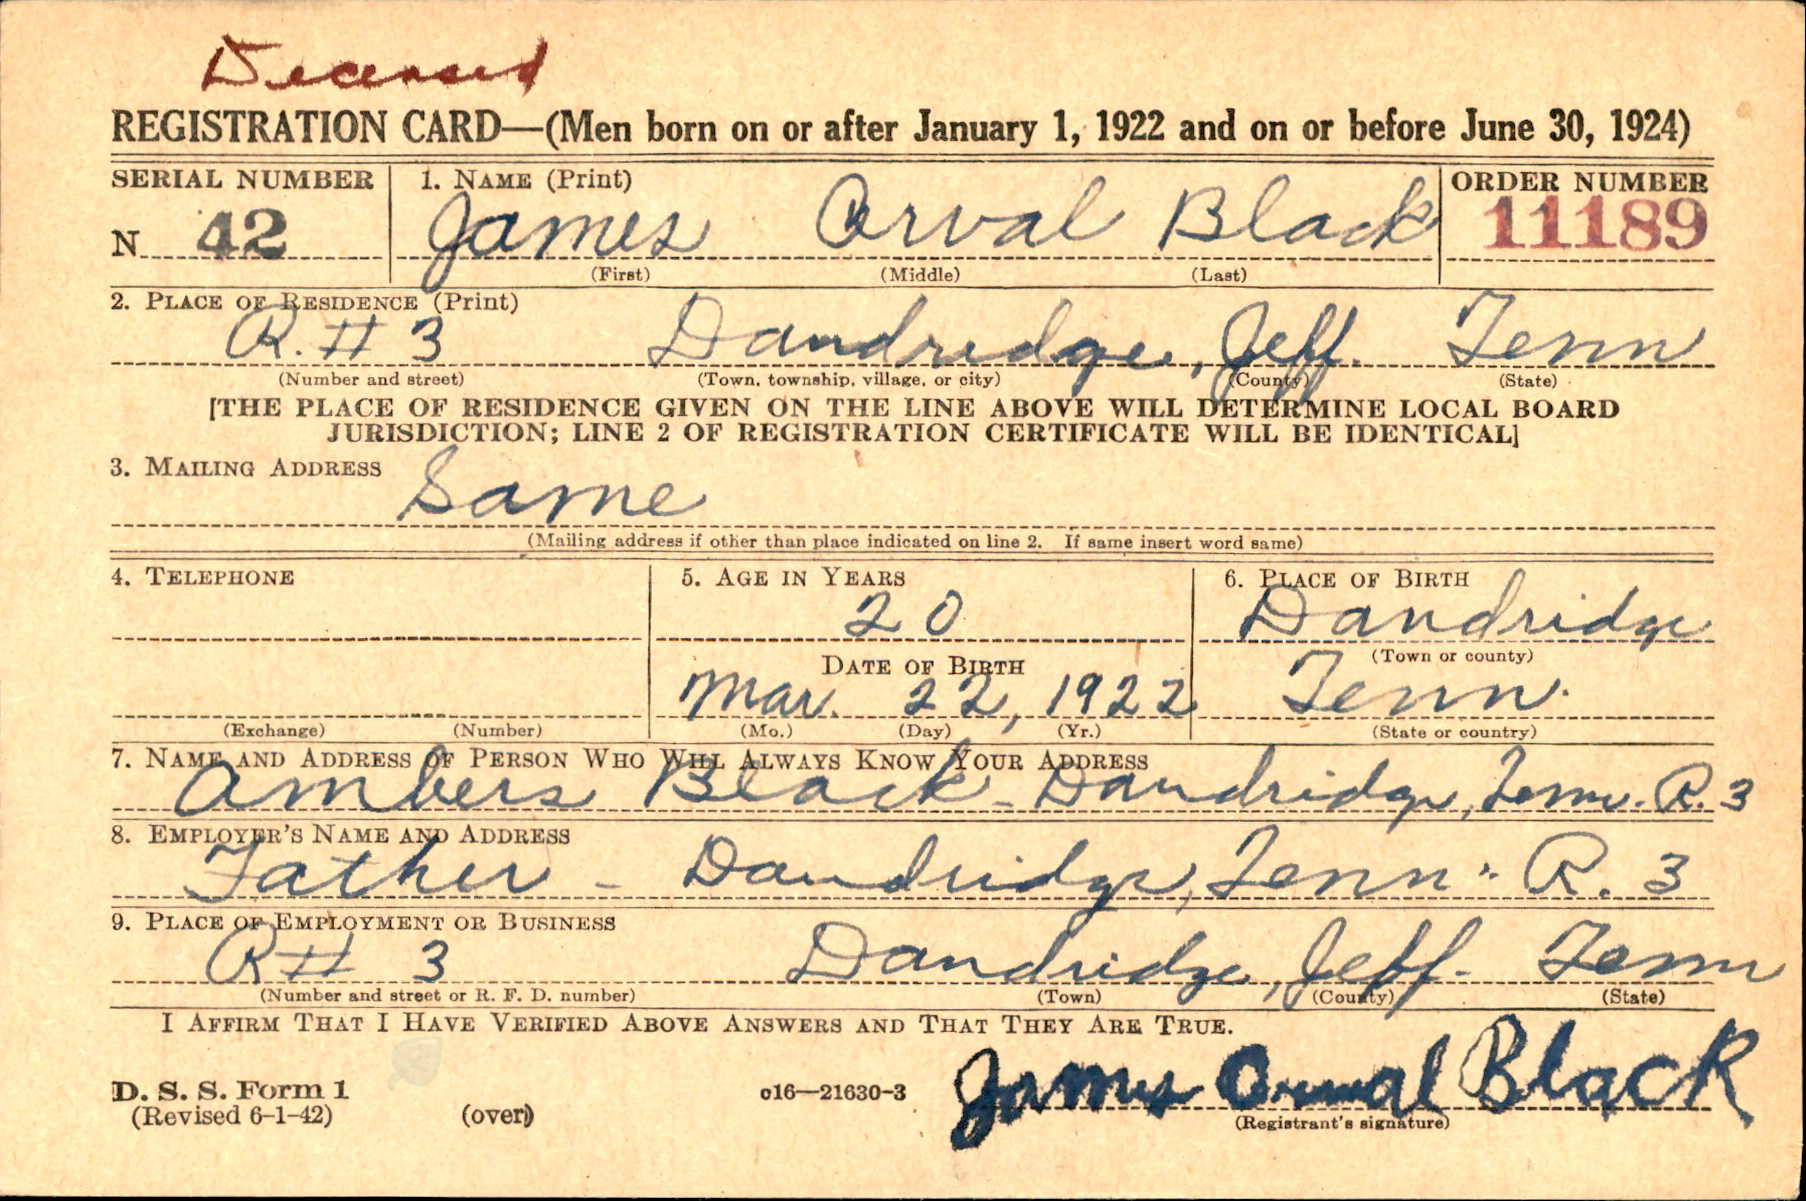 Deceased
REGISTRATION CARD—(Men born on or after January 1, 1922 and on or before June 30, 1924)
SERIAL NUMBER 1. NAME (Print) ORDER NUMBER
N 42 James Orval Black 11189
(First) (Middle) (Last)
2. PLACE OF RESIDENCE (Print)
R. # 3 Dandridge, Jeff. Tenn
(Number and street) (Town, township, village, or city) (County) (State)
[THE PLACE OF RESIDENCE GIVEN ON THE LINE ABOVE WILL DETERMINE LOCAL BOARD
JURISDICTION; LINE 2 OF REGISTRATION CERTIFICATE WILL BE IDENTICAL]
3. MAILING ADDRESS
Same
(Mailing address if other than place indicated on line 2. If same insert word same)
4. TELEPHONE 5. AGE IN YEARS 6. PLACE OF BIRTH
20 Dandridge
DATE OF BIRTH (Town or county)
Mar. 22, 1922 Tenn.
(Exchange) (Number) (Mo.) (Day) (Yr.) (State or country)
7. NAME AND ADDRESS OF PERSON WHO WILL ALWAYS KNOW YOUR ADDRESS
Ambers Black - Dandridge, Tenn. R. 3
8. EMPLOYER'S NAME AND ADDRESS
Father - Dandridge, Tenn. R. 3
9. PLACE OF EMPLOYMENT OR BUSINESS
R # 3 Dandridge, Jeff. Tenn
(Number and street or R. F. D. number) (Town) (County) (State)
I AFFIRM THAT I HAVE VERIFIED ABOVE ANSWERS AND THAT THEY ARE TRUE.
James Orval Black
D. S. S. Form 1 c16—21630-3
(Revised 6-1-42) (over) (Registrant's signature)